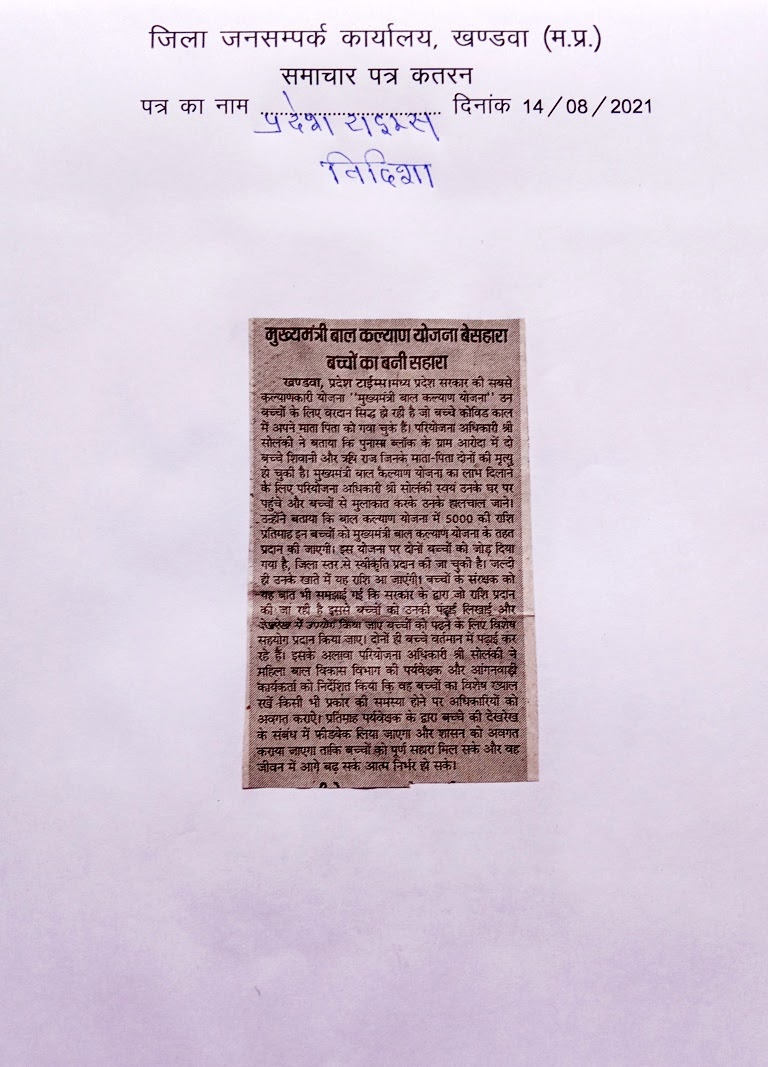 जिला जनसम्पर्क कार्यालय, खण्डवा (म.प्र.)
समाचार पत्र कतरन
पत्र का नाम ........................ दिनांक 14/08/2021
प्रदेश टाइम्स
विदिशा
मुख्यमंत्री बाल कल्याण योजना बेसहारा
बच्चों का बनी सहारा
खण्डवा, प्रदेश टाईम्स।मध्य प्रदेश सरकार की सबसे
कल्याणकारी योजना ''मुख्यमंत्री बाल कल्याण योजना'' उन
बच्चों के लिए वरदान सिद्ध हो रही है जो बच्चे कोविड काल
में अपने माता पिता को गवा चुके हैं। परियोजना अधिकारी श्री
सोलंकी ने बताया कि पुनासा ब्लॉक के ग्राम आरोदा में दो
बच्चे शिवानी और ऋषि राज जिनके माता-पिता दोनों की मृत्यु
हो चुकी है। मुख्यमंत्री बाल कल्याण योजना का लाभ दिलाने
के लिए परियोजना अधिकारी श्री सोलंकी स्वयं उनके घर पर
पहुंचे और बच्चों से मुलाकात करके उनके हालचाल जाने।
उन्होंने बताया कि बाल कल्याण योजना में 5000 की राशि
प्रतिमाह इन बच्चों को मुख्यमंत्री बाल कल्याण योजना के तहत
प्रदान की जाएगी। इस योजना पर दोनों बच्चों को जोड़ दिया
गया है, जिला स्तर से स्वीकृति प्रदान की जा चुकी है। जल्दी
ही उनके खाते में यह राशि आ जाएंगी। बच्चों के संरक्षक को
यह बात भी समझाई गई कि सरकार के द्वारा जो राशि प्रदान
की जा रही है इससे बच्चों को उनकी पढ़ाई लिखाई और
देखरेख में उपयोग किया जाए बच्चों को पढ़ने के लिए विशेष
सहयोग प्रदान किया जाए। दोनों ही बच्चे वर्तमान में पढ़ाई कर
रहे हैं। इसके अलावा परियोजना अधिकारी श्री सोलंकी ने
महिला बाल विकास विभाग की पर्यवेक्षक और आंगनवाड़ी
कार्यकर्ता को निर्देशित किया कि वह बच्चों का विशेष ख्याल
रखें किसी भी प्रकार की समस्या होने पर अधिकारियों को
अवगत कराऐं। प्रतिमाह पर्यवेक्षक के द्वारा बच्चे की देखरेख
के संबंध में फीडबैक लिया जाएगा और शासन को अवगत
कराया जाएगा ताकि बच्चों को पूर्ण सहारा मिल सके और वह
जीवन में आगे बढ़ सके आत्म निर्भर हो सके।